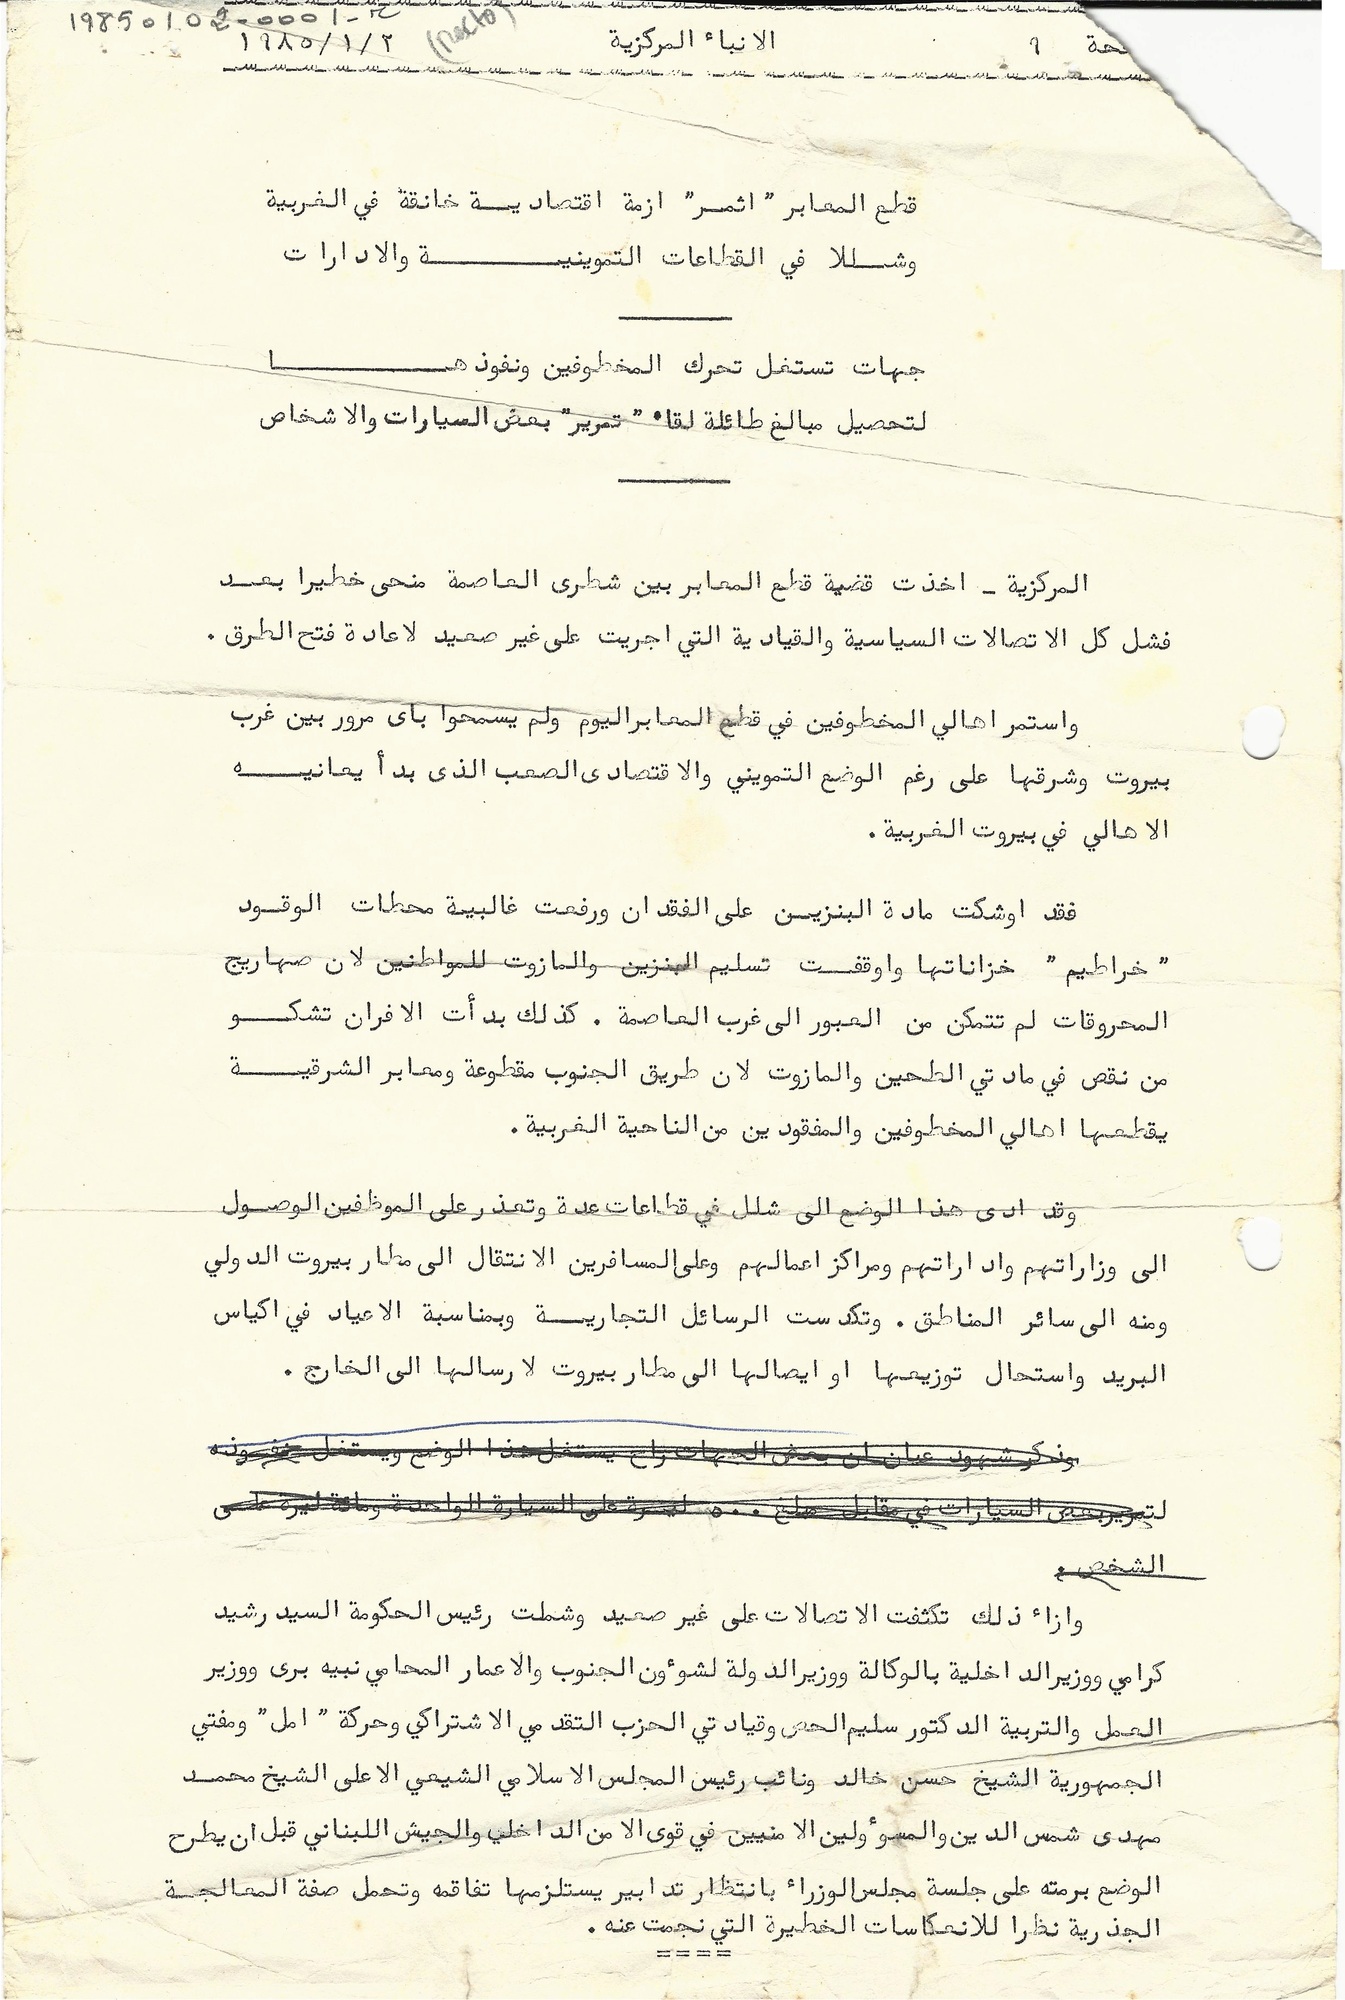 19850102-0001-
(recto)
حة ٩ الانباء المركزية ١٩٨٥/١/٢
قطع المعابر " اثمـر" ازمة اقتصاديـــة خانقة في الغربية
وشـــللا في القطاعات التموينيـــــــــة والادارات
جهات تستغل تحرك المخطوفين ونفوذهـــــــــا
لتحصيل مبالغ طائلة لقاء " تمرير" بعض السيارات والاشخاص
المركزية ـ اخذت قضية قطع المعابر بين شطرى العاصمة منحى خطيرا بعــد
فشل كل الاتصالات السياسية والقيادية التي اجريت على غير صعيد لاعادة فتح الطرق .
واستمر اهالي المخطوفين في قطع المعابر اليوم ولم يسمحوا باى مرور بين غرب
بيروت وشرقها على رغم الوضع التمويني والاقتصادى الصعب الذى بدأ يعانيـــــه
الاهالي في بيروت الغربية .
فقد اوشكت مادة البنزيـن على الفقدان ورفعت غالبية محطات الوقـود
" خراطيم " خزاناتها واوقفــت تسليم البنزين والمازوت للمواطنين لان صهاريج
المحروقات لم تتمكن من العبور الى غرب العاصمة . كذلك بدأت الافران تشكـــو
من نقص في مادتي الطحين والمازوت لان طريق الجنوب مقطوعة ومعابر الشرقيـــــة
يقطعها اهالي المخطوفين والمفقودين من الناحية الغربية .
وقد ادى هذا الوضع الى شلل في قطاعات عدة وتعذر على الموظفين الوصـول
الى وزاراتهم واداراتهم ومراكز اعمالهم وعلى المسافرين الانتقال الى مطار بيروت الدولي
ومنه الى سائر المناطق . وتكدست الرسائل التجاريـــة وبمناسبة الاعياد في اكياس
البريد واستحال توزيعها او ايصالها الى مطار بيروت لارسالها الى الخارج .
وذكر شهود عيان ان بعض الجهات راح يستغل هذا الوضع ويستغل نفـوذه
لتمرير بعض السيارات في مقابل مبلغ ٥٠٠ ليـرة على السيارة الواحدة ومائة ليرة علـى
الشخص .
وازاء ذلك تكثفت الاتصالات على غير صعيد وشملت رئيس الحكومة السيد رشيد
كرامي ووزير الداخلية بالوكالة ووزير الدولة لشوءون الجنوب والاعمار المحامي نبيه برى ووزير
العمل والتربية الدكتور سليم الحص وقيادتي الحزب التقدمي الاشتراكي وحركة " امل" ومفتي
الجمهورية الشيخ حسن خالد ونائب رئيس المجلس الاسلامي الشيعي الاعلى الشيخ محمـد
مهدى شمس الدين والمسوءولين الامنيين في قوى الامن الداخلي والجيش اللبناني قبل ان يطرح
الوضع برمته على جلسة مجلس الوزراء بانتظار تدابير يستلزمها تفاقمه وتحمل صفة المعالجــة
الجذرية نظرا للانعكاسات الخطيرة التي نجمت عنه .
====